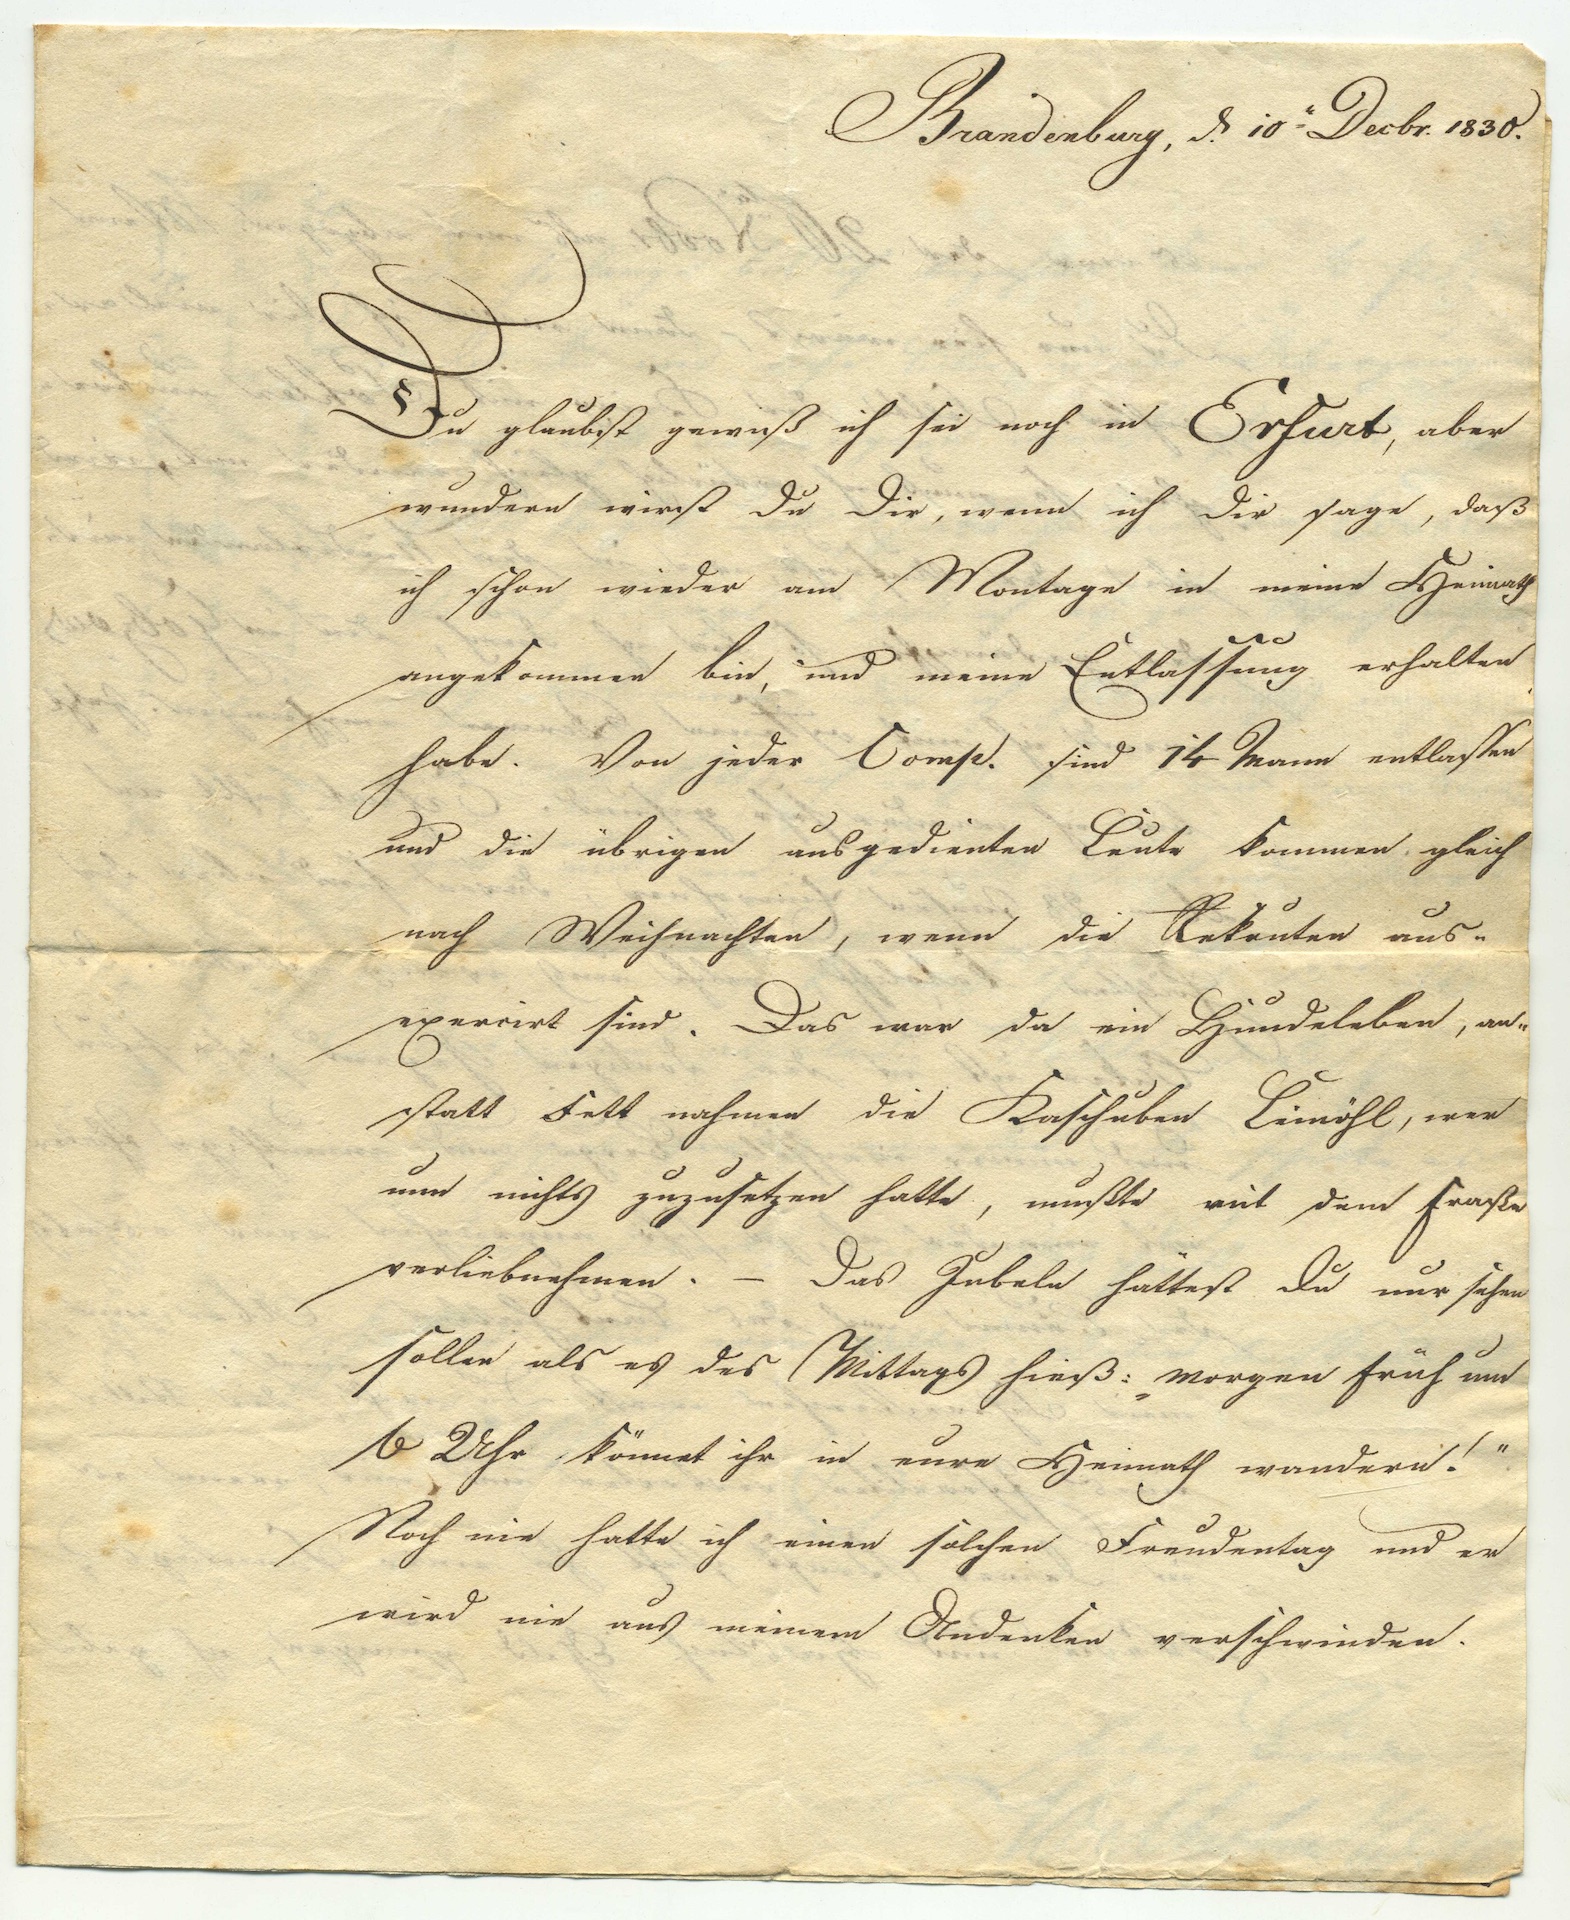 Brandenburg, d. 10t Decbr. 1830.
Du glaubst gewiß ich sei noch in Erfurt, aber
wundern wirst Du Dir, wenn ich Dir sage, daß
ich schon wieder am Montage in meine Heimath
angekommen bin, und meine Entlassung erhalten
habe. Von jeder Comp. sind 14 Mann entlassen
und die übrigen ausgedienten Leute kommen gleich
nach Weihnachten, wenn die Rekruten aus-
exercirt sind. Das war da ein Hundeleben, an-
statt Fett nahmen die Kaschuben Leinöhl, wer
nun nichts zuzusetzen hatte, mußte mit dem Fraße
verliebnehmen. – Das Jubeln hättest Du nur sehen
sollen als es des Mittags hieß: „morgen früh um
6 Uhr könnet ihr in eure Heimath wandern!"
Noch nie hatte ich einen solchen Freudentag und er
wird nie aus meinem Andenken verschwinden.